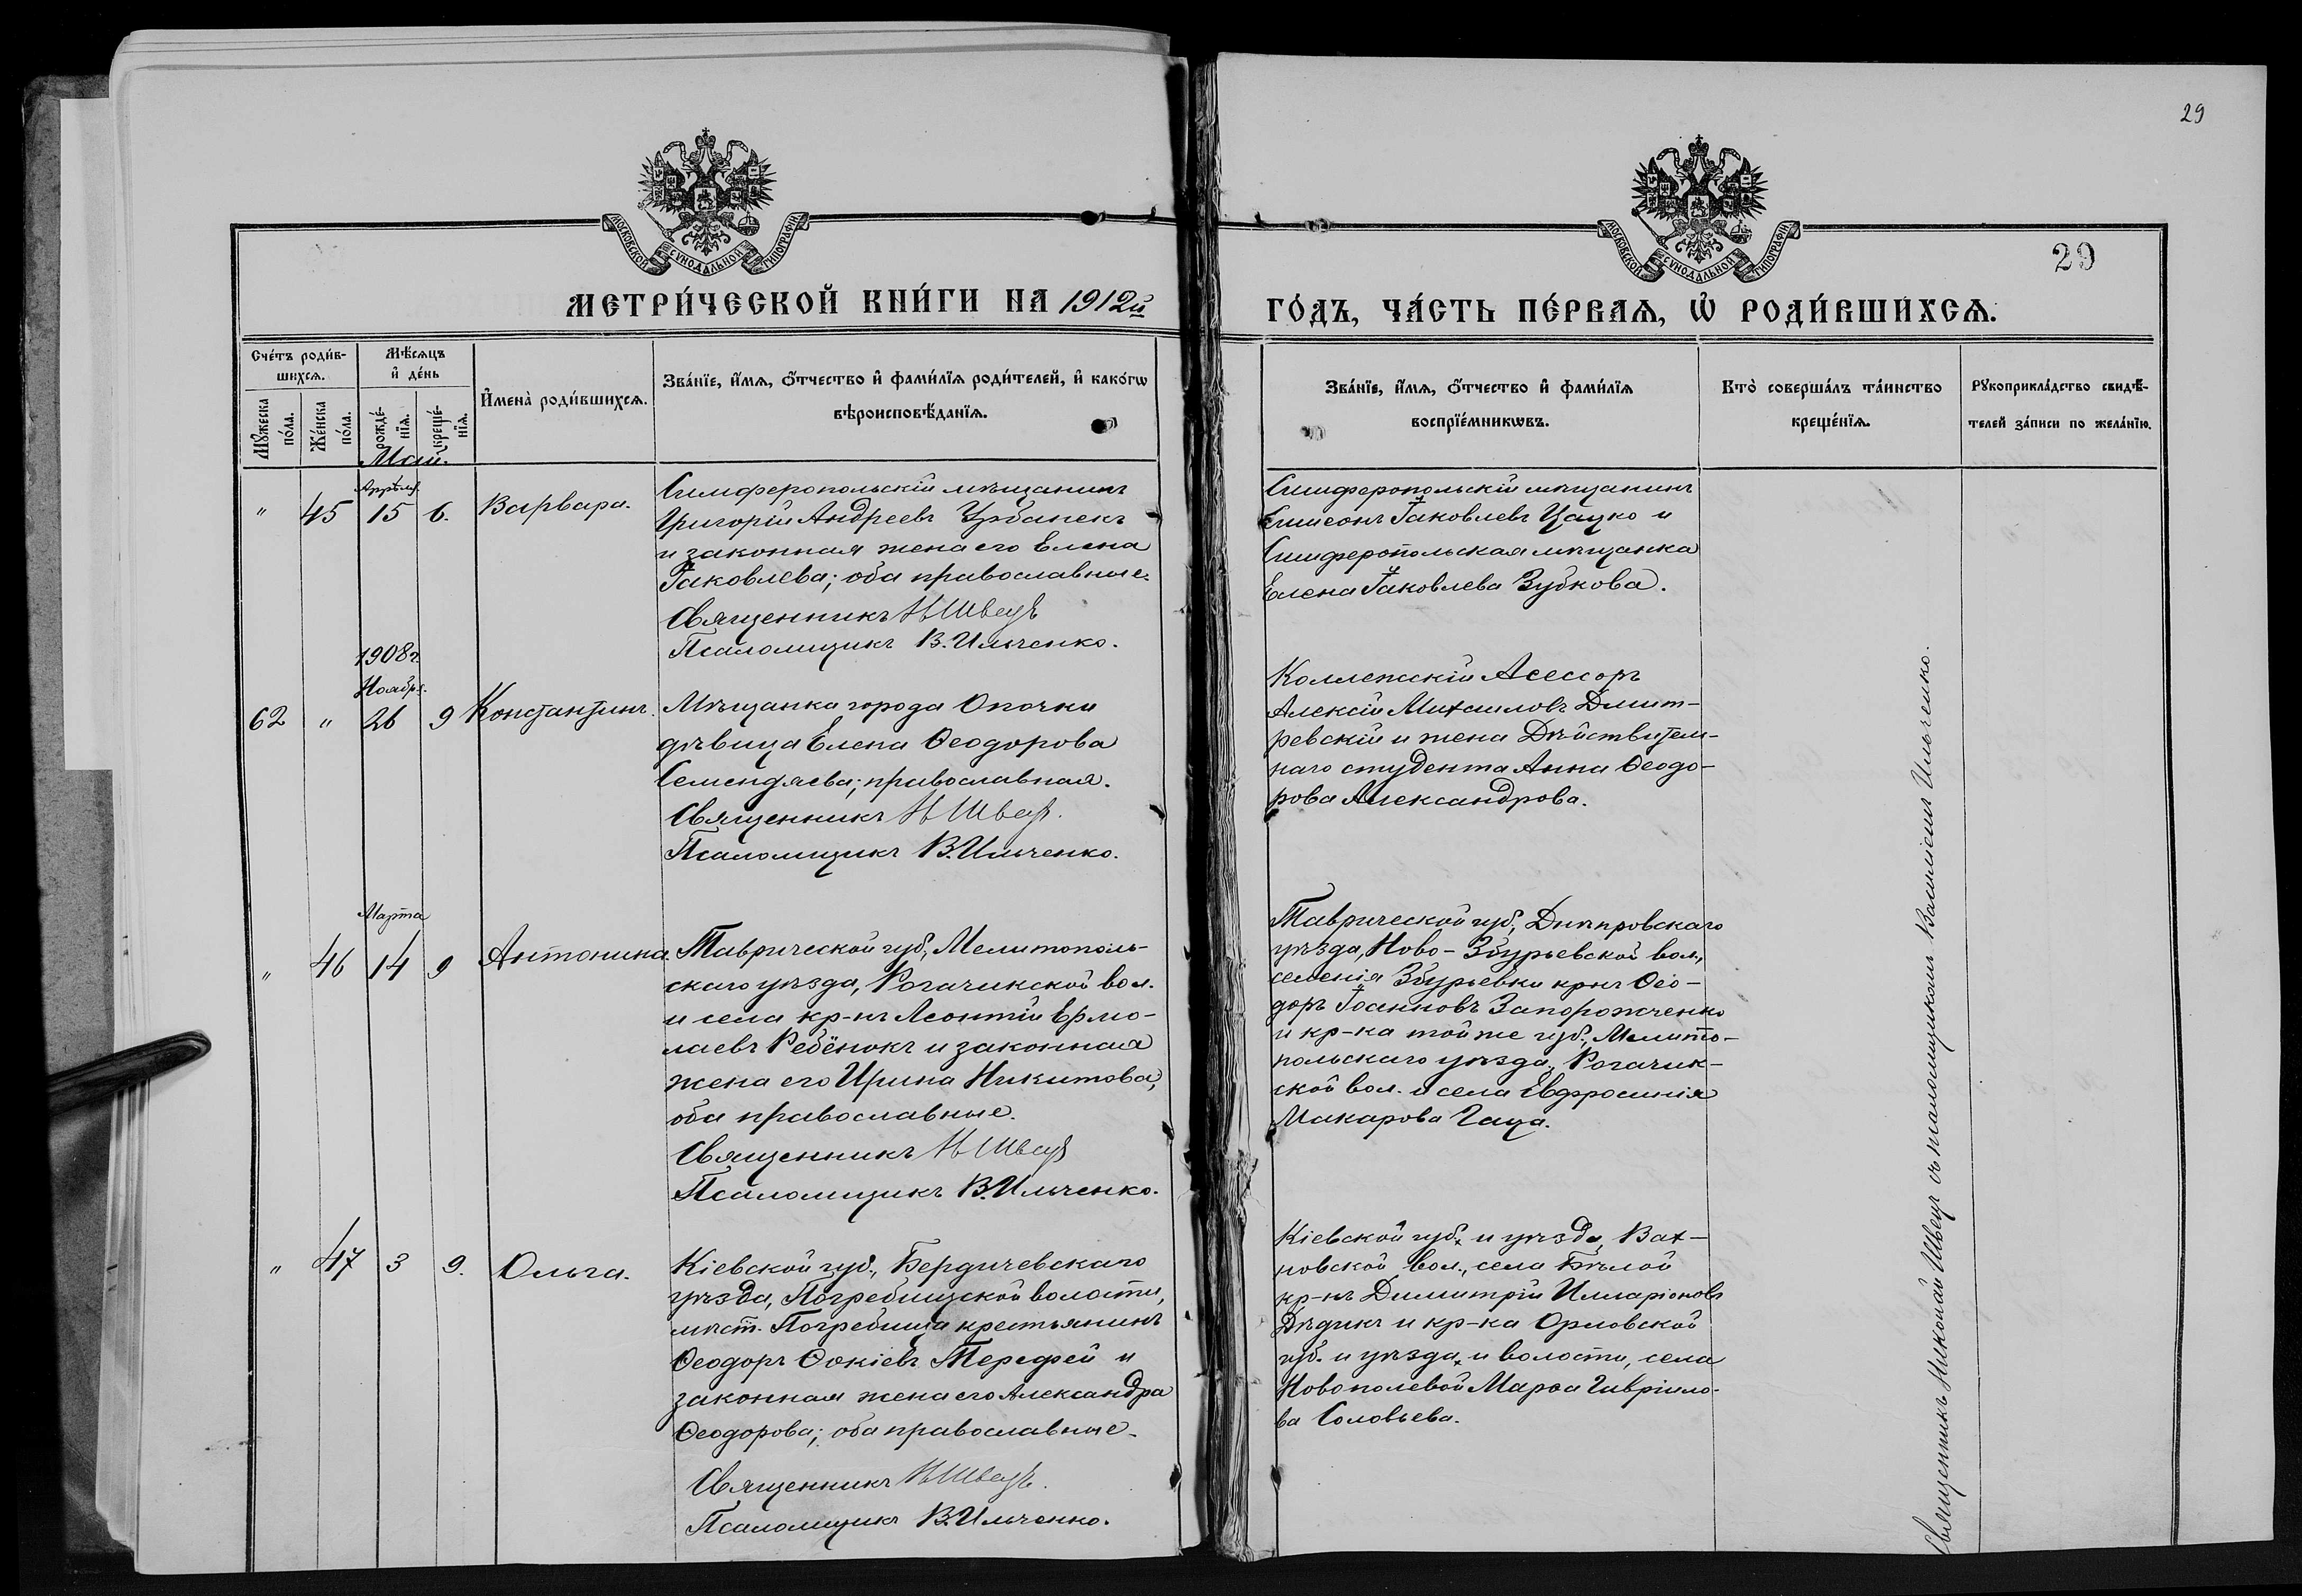 29
МОСКОВСКОЙ СѴНОДАЛЬНОЙ ТИПОГРАФІИ
МОСКОВСКОЙ СѴНОДАЛЬНОЙ ТИПОГРАФІИ
29
МЕТРИ́ЧЕСКОЙ КНИ́ГИ НА 1912й
ГО́ДЪ, ЧА́СТЬ ПЕ́РВАѦ, Ѡ҆ РОДИ́ВШИХСѦ.
Сче́тъ роди́в-
шихсѧ.
Мѣ́сѧцъ
и҆ де́нь
Мꙋ́жеска
по́ла.
Же́нска
по́ла.
рожде́-
нїѧ.
креще́-
нїѧ.
И҆мена̀ роди́вшихсѧ.
Зва́нїе, и҆́мѧ, ѻ҆́тчество и҆ фами́лїѧ роди́телей, и҆ како́гѡ
вѣроисповѣ́данїѧ.
Зва́нїе, и҆́мѧ, ѻ҆́тчество и҆ фами́лїѧ
воспрїе́мникѡвъ.
Кто̀ соверша́лъ та́инство
креще́нїѧ.
Рꙋкоприкла́дство свидѣ́-
телей за́писи по жела́нїю.
Май.
Апрѣля
" 45 15 6. Варвара.
Симферопольскій мѣщанинъ
Григорій Андреевъ Урбанекъ
и законная жена его Елена
Іаковлева; оба православные.
Священникъ Н Швецъ
Псаломщикъ В. Ильченко.
Симферопольскій мѣщанинъ
Симеонъ Іаковлевъ Цацко и
Симферопольская мѣщанка
Елена Іаковлева Зубкова.
1908г.
Ноябр.
62 " 26 9 Константинъ.
Мѣщанка города Опочки
дѣвица Елена Ѳеодорова
Семендяева; православная.
Священникъ Н Швецъ.
Псаломщикъ В. Ильченко.
Коллежскій Асессоръ
Алексій Михаиловъ Дмит-
ревскій и жена Дѣйствитель-
наго студента Анна Ѳеодо-
рова Александрова.
Марта
" 46 14 9 Антонина.
Таврической губ., Мелитополь-
скаго уѣзда, Рогачикской вол.
и села кр-нъ Леонтій Ермо-
лаевъ Ребёнокъ и законная
жена его Ирина Никитова,
оба православные.
Священникъ Н Швецъ
Псаломщикъ В. Ильченко.
Таврической губ., Днѣпровскаго
уѣзда, Ново-Збурьевской вол.,
селенія Збурьевки крнъ Ѳео-
доръ Іоанновъ Запорожченко
и кр-ка той же губ., Мелито-
польскаго уѣзда, Рогачик-
ской вол. и села Евфросинія
Макарова Гаца.
" 47 3 9. Ольга.
Кіевской губ., Бердичевскаго
уѣзда, Погребищской волости,
мѣст. Погребища крестьянинъ
Ѳеодоръ Ѳокіевъ Терефей и
законная жена его Александра
Ѳеодорова; оба православные.
Священникъ Н Швецъ.
Псаломщикъ В. Ильченко.
Кіевской губ. и уѣзда, Вах-
новской вол., села Бѣлой
кр-нъ Димитрій Илларіоновъ
Дѣдикъ и кр-ка Орловской
губ. и уѣзда, и волости, села
Новополевой Марѳа Гавріило-
ва Соловьева.
Священникъ Николай Швецъ съ псаломщикомъ Василіемъ Ильченко.